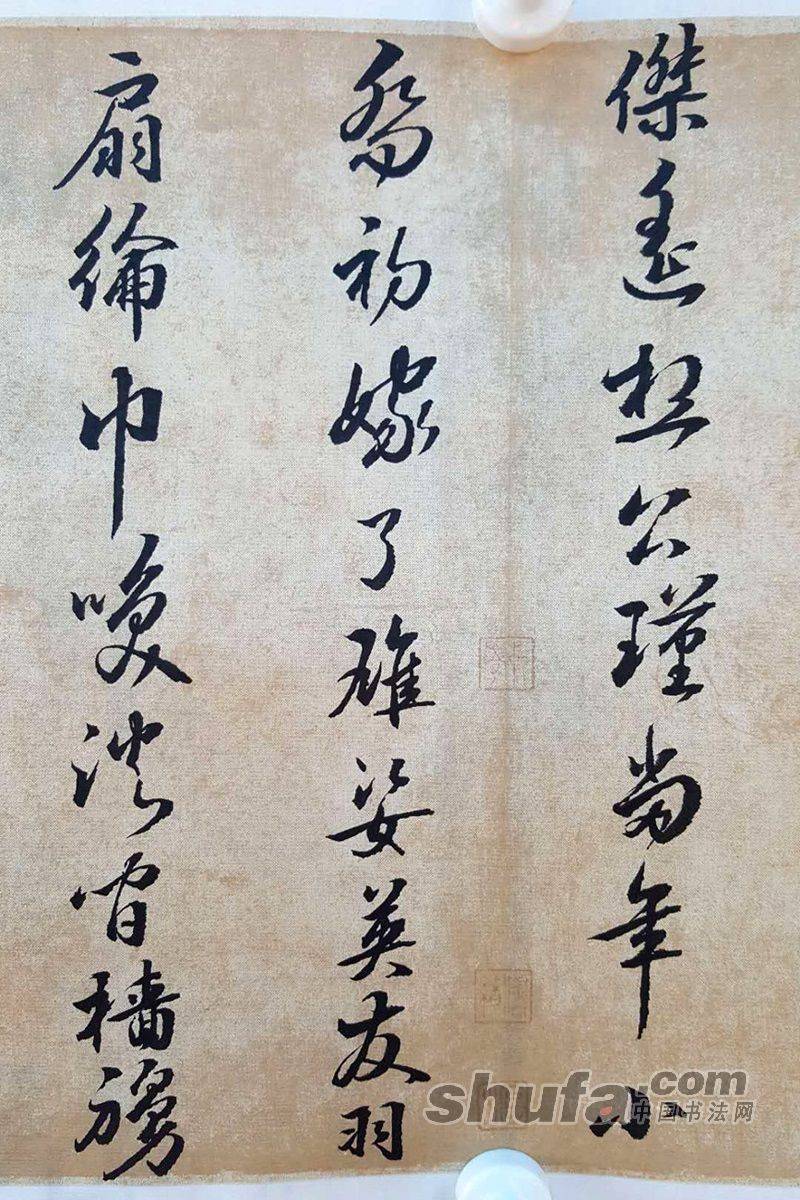 傑遙想公瑾當年小
喬初嫁了雄姿英发羽
扇綸巾咲談間檣艣
shufa.com
中国书法网